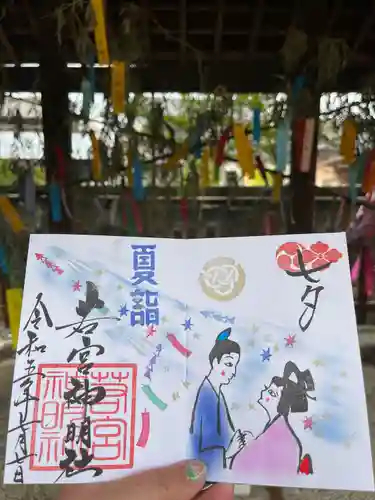 七夕
夏詣
若宮神明社
若宮
神明社
令和五年七月七日